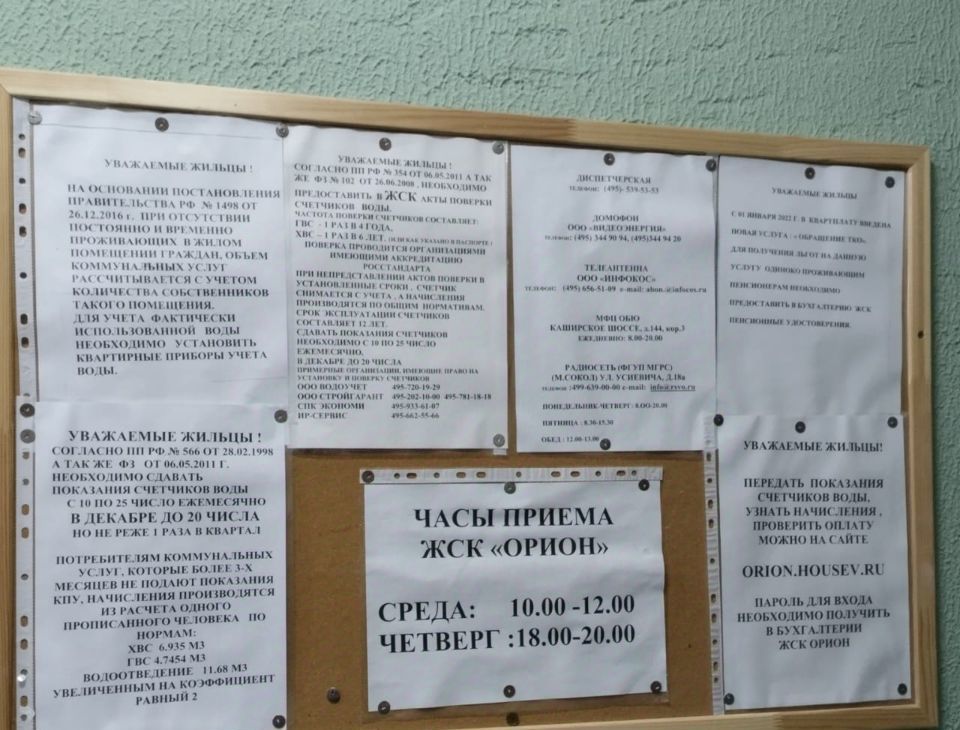 УВАЖАЕМЫЕ ЖИЛЬЦЫ !
НА ОСНОВАНИИ ПОСТАНОВЛЕНИЯ
ПРАВИТЕЛЬСТВА РФ № 1498 ОТ
26.12.2016 г. ПРИ ОТСУТСТВИИ
ПОСТОЯННО И ВРЕМЕННО
ПРОЖИВАЮЩИХ В ЖИЛОМ
ПОМЕЩЕНИИ ГРАЖДАН, ОБЪЕМ
КОММУНАЛЬНЫХ УСЛУГ
РАССЧИТЫВАЕТСЯ С УЧЕТОМ
КОЛИЧЕСТВА СОБСТВЕННИКОВ
ТАКОГО ПОМЕЩЕНИЯ.
ДЛЯ УЧЕТА ФАКТИЧЕСКИ
ИСПОЛЬЗОВАННОЙ ВОДЫ
НЕОБХОДИМО УСТАНОВИТЬ
КВАРТИРНЫЕ ПРИБОРЫ УЧЕТА
ВОДЫ.
УВАЖАЕМЫЕ ЖИЛЬЦЫ !
СОГЛАСНО ПП РФ № 354 ОТ 06.05.2011 А ТАК
ЖЕ ФЗ № 102 ОТ 26.06.2008 , НЕОБХОДИМО
ПРЕДОСТАВИТЬ В ЖСК АКТЫ ПОВЕРКИ
СЧЕТЧИКОВ ВОДЫ.
ЧАСТОТА ПОВЕРКИ СЧЕТЧИКОВ СОСТАВЛЯЕТ:
ГВС - 1 РАЗ В 4 ГОДА,
ХВС – 1 РАЗ В 6 ЛЕТ. (ИЛИ КАК УКАЗАНО В ПАСПОРТЕ )
ПОВЕРКА ПРОВОДИТСЯ ОРГАНИЗАЦИЯМИ
ИМЕЮЩИМИ АККРЕДИТАЦИЮ
РОССТАНДАРТА
ПРИ НЕПРЕДСТАВЛЕНИИ АКТОВ ПОВЕРКИ В
УСТАНОВЛЕННЫЕ СРОКИ , СЧЕТЧИК
СНИМАЕТСЯ С УЧЕТА , А НАЧИСЛЕНИЯ
ПРОИЗВОДЯТСЯ ПО ОБЩИМ НОРМАТИВАМ.
СРОК ЭКСПЛУАТАЦИИ СЧЕТЧИКОВ
СОСТАВЛЯЕТ 12 ЛЕТ.
СДАВАТЬ ПОКАЗАНИЯ СЧЕТЧИКОВ
НЕОБХОДИМО С 10 ПО 25 ЧИСЛО
ЕЖЕМЕСЯЧНО.
В ДЕКАБРЕ ДО 20 ЧИСЛА
ПРИМЕРНЫЕ ОРГАНИЗАЦИИ, ИМЕЮЩИЕ ПРАВО НА
УСТАНОВКУ И ПОВЕРКУ СЧЕТЧИКОВ
ООО ВОДОУЧЕТ 495-720-19-29
ООО СТРОЙГАРАНТ 495-202-10-00 495-781-18-18
СПК ЭКОНОМИ 495-933-61-07
ИР-СЕРВИС 495-662-55-66
ДИСПЕТЧЕРСКАЯ
ТЕЛЕФОН: (495)- 539-53-53
ДОМОФОН
ООО «ВИДЕОЭНЕРГИЯ»
ТЕЛЕФОН: (495) 344 90 94, (495)344 94 20
ТЕЛЕАНТЕННА
ООО «ИНФОКОС»
ТЕЛЕФОН: (495) 656-51-09 e-mail: abon.@infocos.ru
МФЦ ОБЮ
КАШИРСКОЕ ШОССЕ, д.144, кор.3
ЕЖЕДНЕВНО: 8.00-20.00
РАДИОСЕТЬ (ФГУП МГРС)
(М.СОКОЛ) УЛ. УСИЕВИЧА, Д.18а
ТЕЛЕФОН :499-639-00-00 e-mail: info@rsvo.ru
ПОНЕДЕЛЬНИК-ЧЕТВЕРГ: 8.OO-20.00
ПЯТНИЦА : 8.30-15.30
ОБЕД : 12.00-13.00
УВАЖАЕМЫЕ ЖИЛЬЦЫ
С 01 ЯНВАРЯ 2022 Г. В КВАРТПЛАТУ ВВЕДЕНА
НОВАЯ УСЛУГА : « ОБРАЩЕНИЕ ТКО».
ДЛЯ ПОЛУЧЕНИЯ ЛЬГОТ НА ДАННУЮ
УСЛУГУ ОДИНОКО ПРОЖИВАЮЩИМ
ПЕНСИОНЕРАМ НЕОБХОДИМО
ПРЕДОСТАВИТЬ В БУХГАЛТЕРИЮ ЖСК
ПЕНСИОННЫЕ УДОСТОВЕРЕНИЯ.
УВАЖАЕМЫЕ ЖИЛЬЦЫ !
СОГЛАСНО ПП РФ № 566 ОТ 28.02.1998
А ТАК ЖЕ ФЗ ОТ 06.05.2011 Г.
НЕОБХОДИМО СДАВАТЬ
ПОКАЗАНИЯ СЧЕТЧИКОВ ВОДЫ
С 10 ПО 25 ЧИСЛО ЕЖЕМЕСЯЧНО
В ДЕКАБРЕ ДО 20 ЧИСЛА
НО НЕ РЕЖЕ 1 РАЗА В КВАРТАЛ
ПОТРЕБИТЕЛЯМ КОММУНАЛЬНЫХ
УСЛУГ, КОТОРЫЕ БОЛЕЕ 3-Х
МЕСЯЦЕВ НЕ ПОДАЮТ ПОКАЗАНИЯ
КПУ, НАЧИСЛЕНИЯ ПРОИЗВОДЯТСЯ
ИЗ РАСЧЕТА ОДНОГО
ПРОПИСАННОГО ЧЕЛОВЕКА ПО
НОРМАМ:
ХВС 6.935 М3
ГВС 4.7454 М3
ВОДООТВЕДЕНИЕ 11.68 М3
УВЕЛИЧЕННЫМ НА КОЭФФИЦИЕНТ
РАВНЫЙ 2
ЧАСЫ ПРИЕМА
ЖСК «ОРИОН»
СРЕДА: 10.00 -12.00
ЧЕТВЕРГ :18.00-20.00
УВАЖАЕМЫЕ ЖИЛЬЦЫ!
ПЕРЕДАТЬ ПОКАЗАНИЯ
СЧЕТЧИКОВ ВОДЫ,
УЗНАТЬ НАЧИСЛЕНИЯ ,
ПРОВЕРИТЬ ОПЛАТУ
МОЖНО НА САЙТЕ
ORION.HOUSEV.RU
ПАРОЛЬ ДЛЯ ВХОДА
НЕОБХОДИМО ПОЛУЧИТЬ
В БУХГАЛТЕРИИ
ЖСК ОРИОН